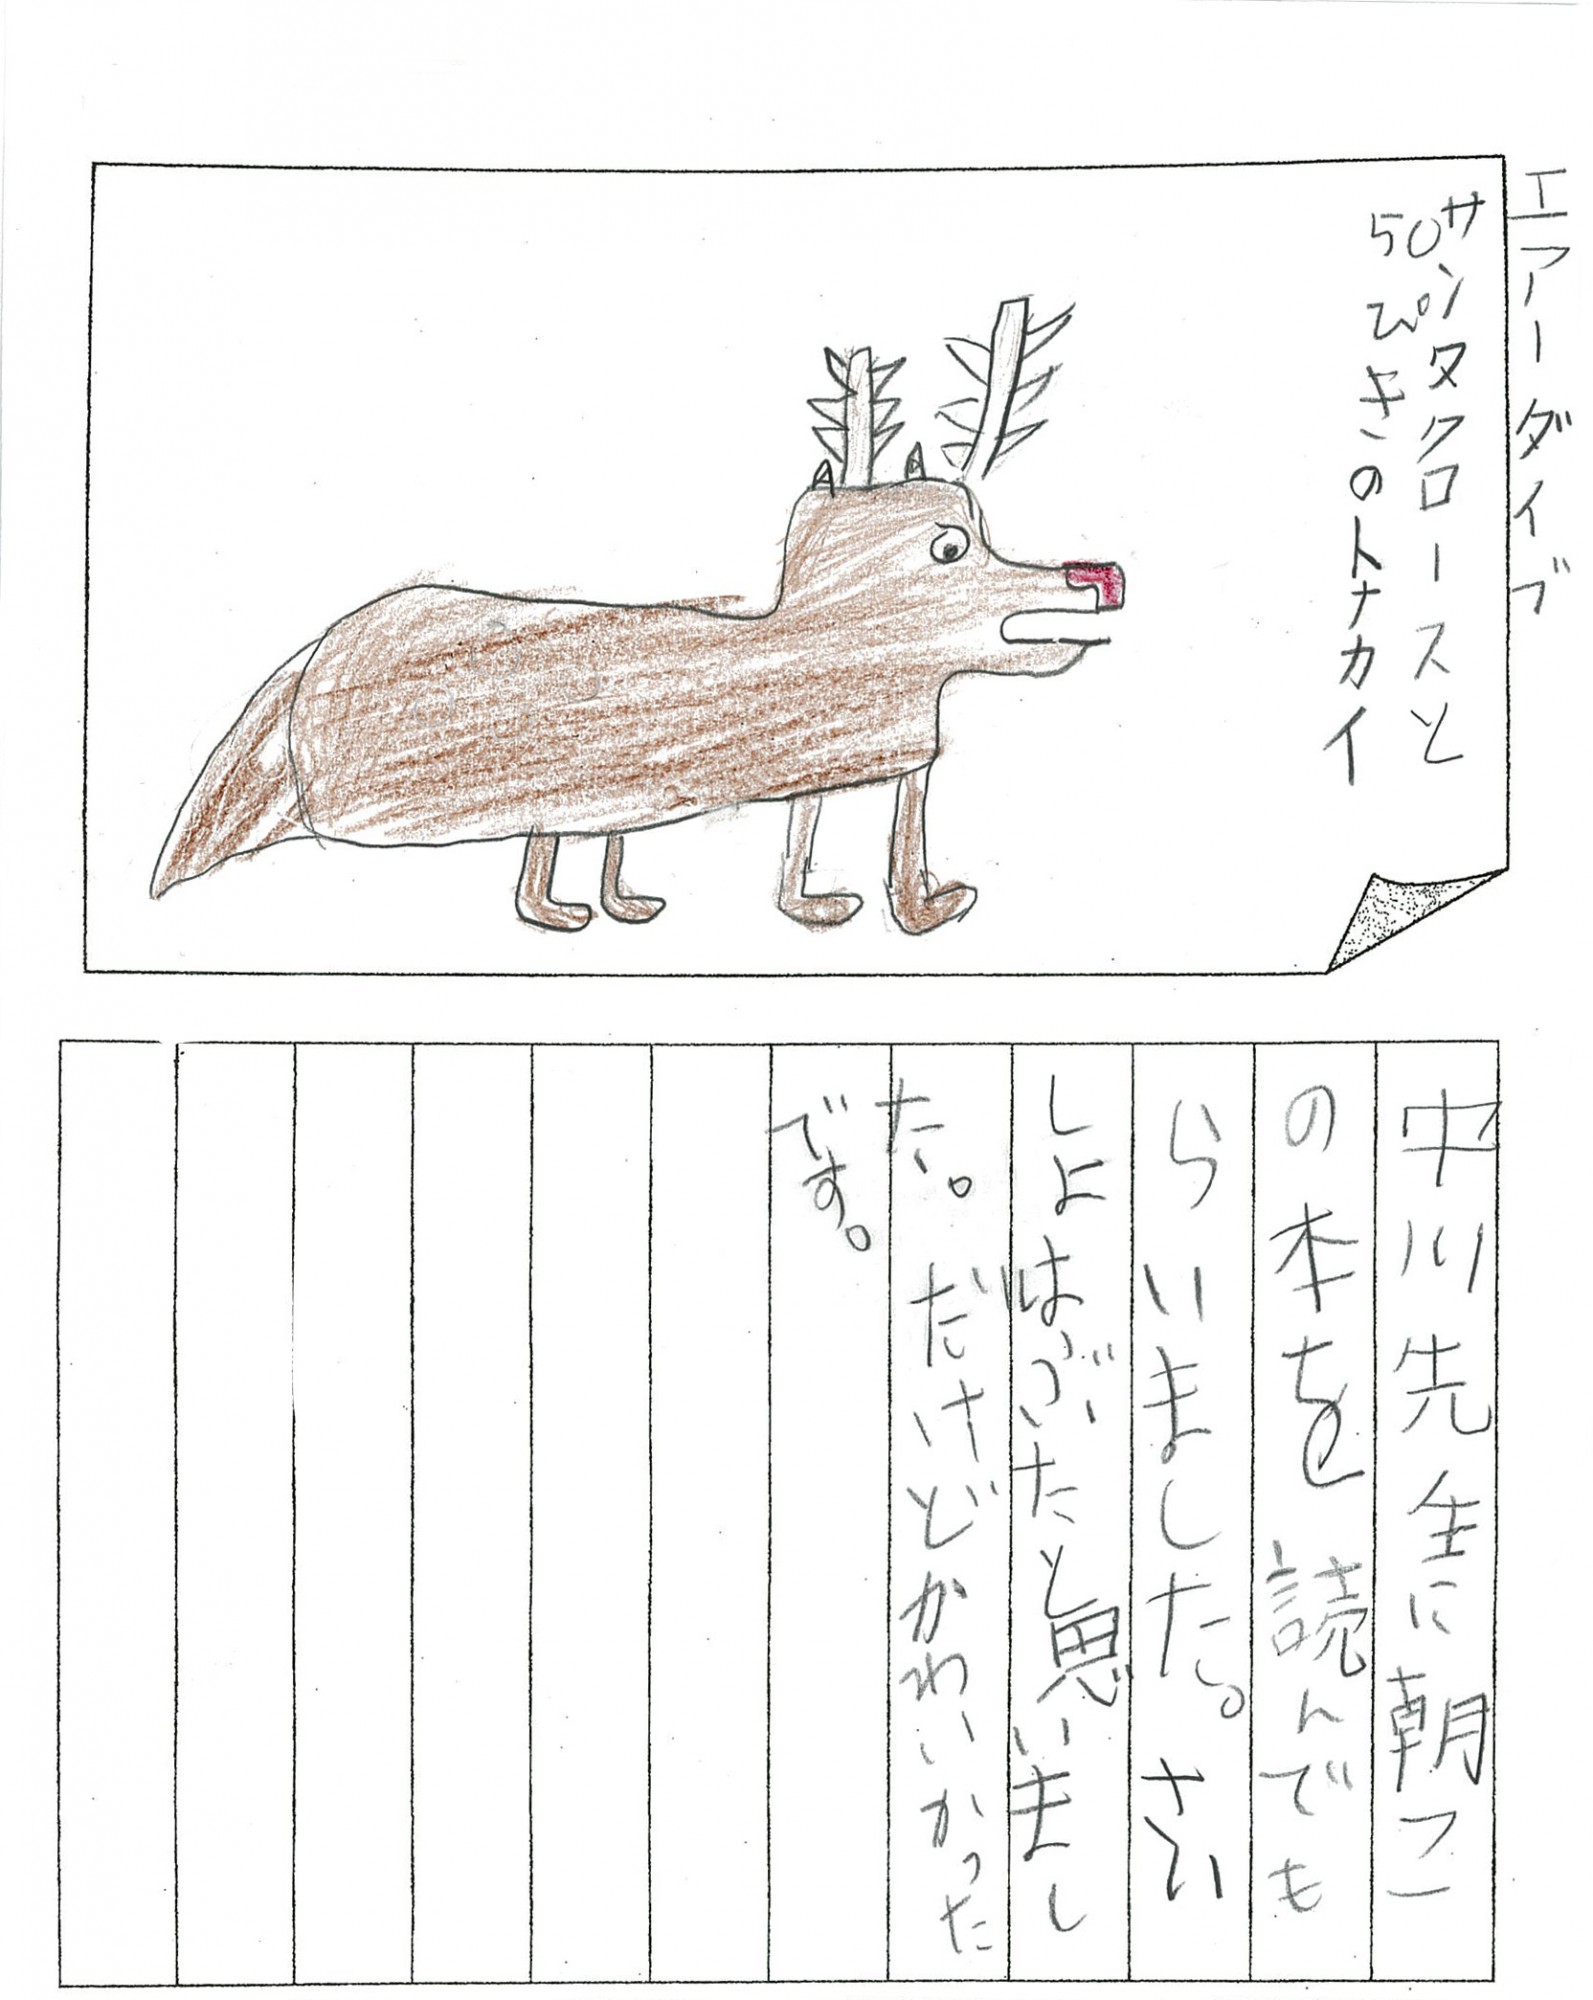 エアーダイブ
サンタクロースと
50ぴきのトナカイ
中川先生に朝こ
の本を読んでも
らいました。さい
しよはぶたと思いまし
た。だけどかわいかった
です。